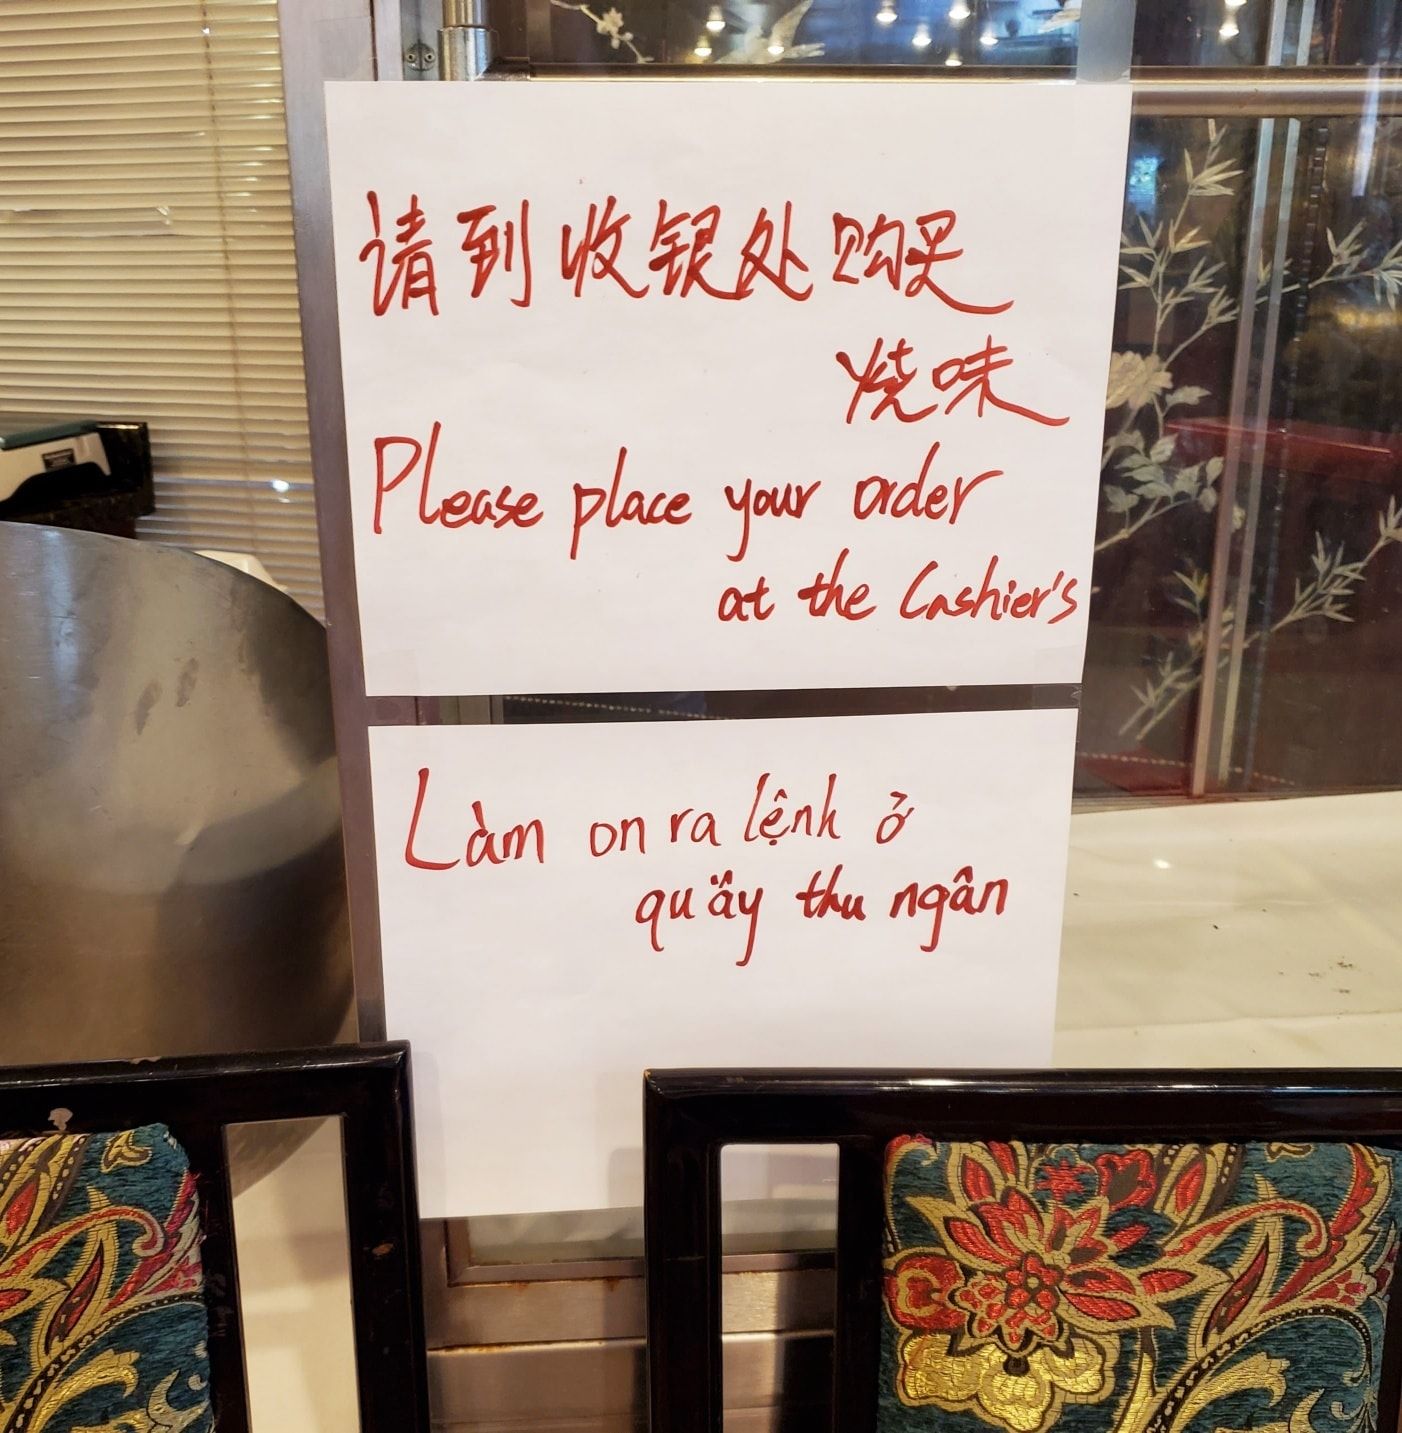 请到收银处购买
烧味
Please place your order
at the Cashier's
Làm on ra lệnh ở
quầy thu ngân